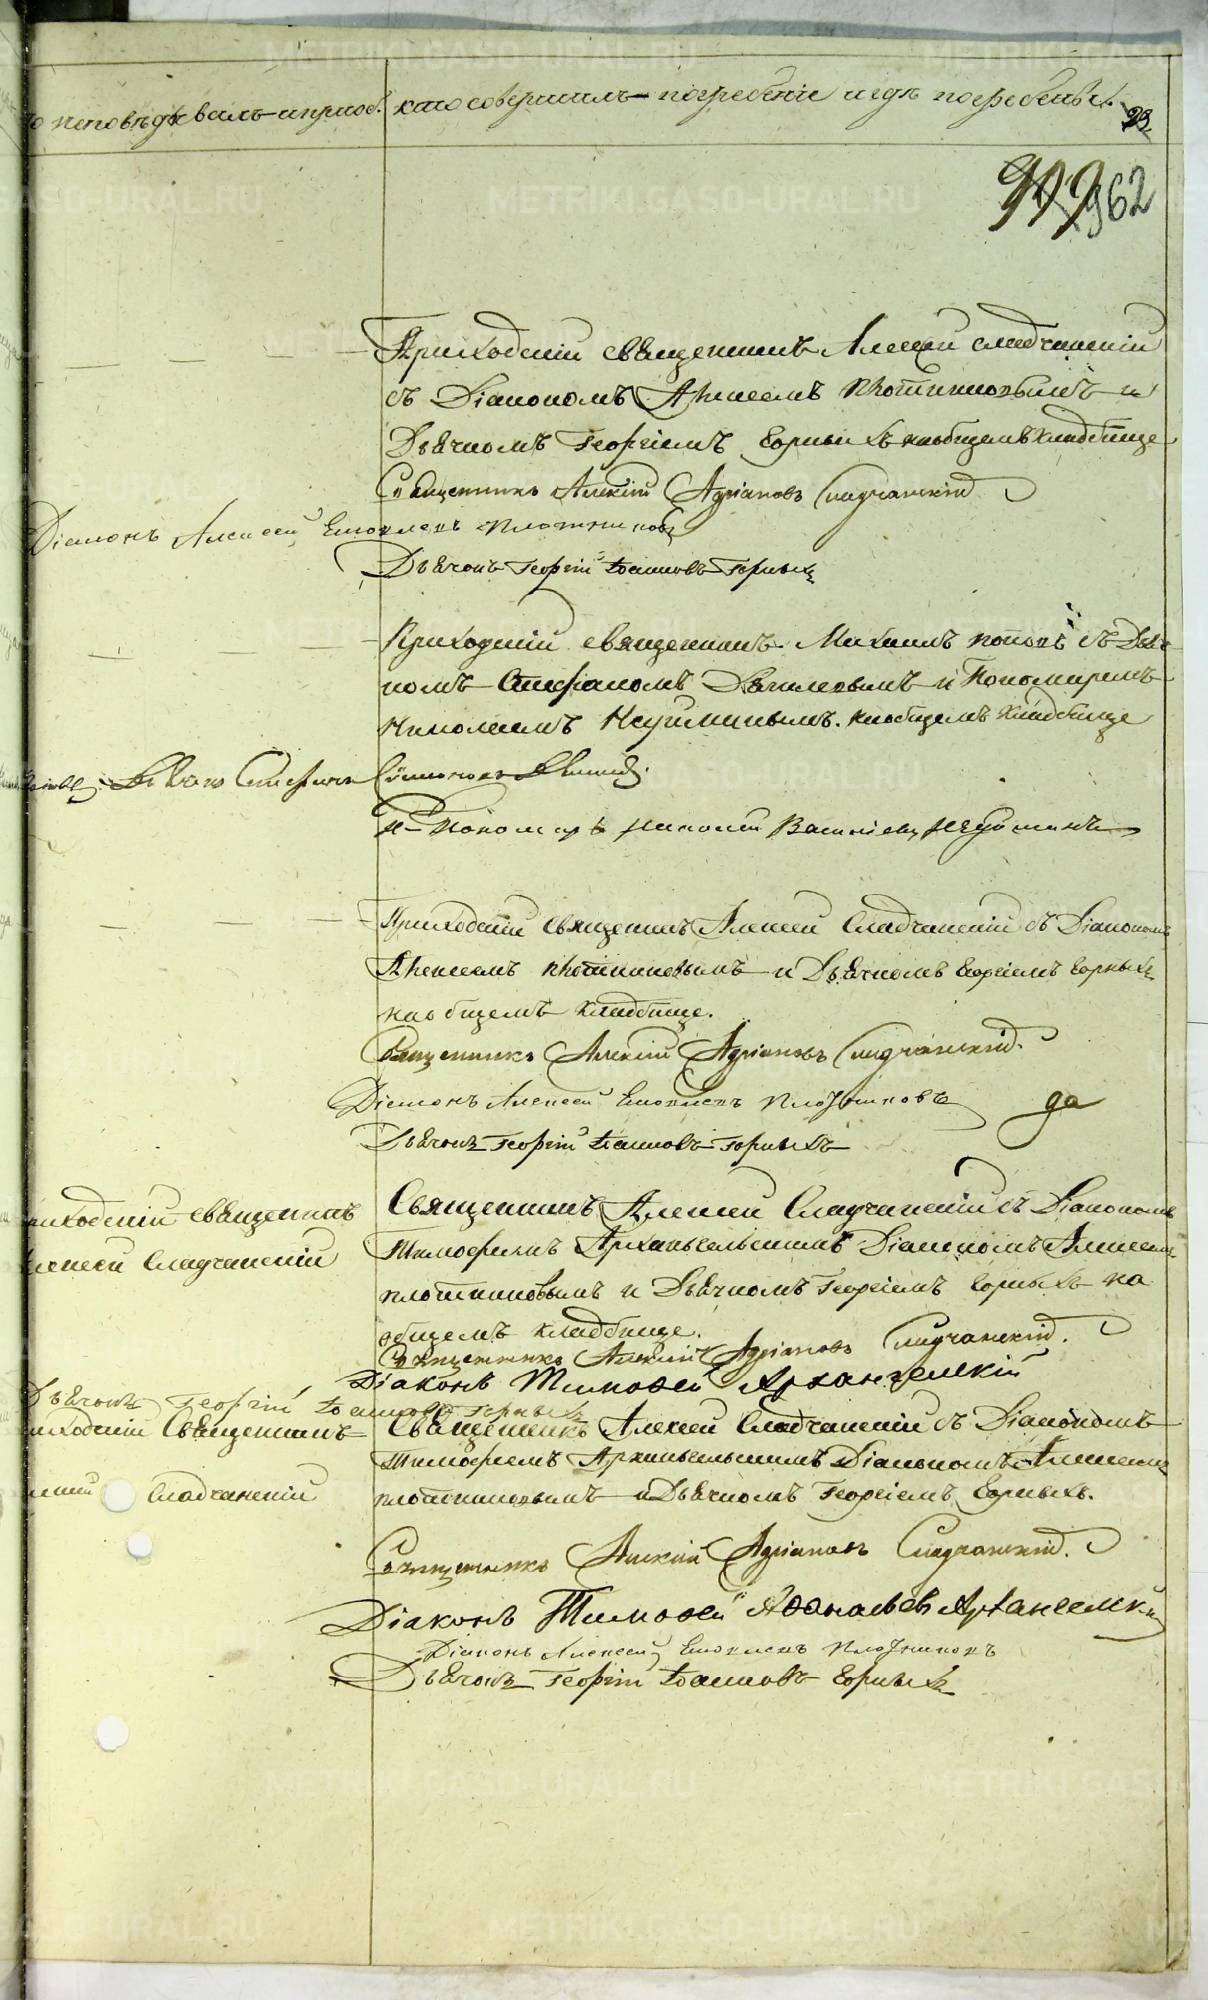 METRIKI.GASO-URAL.RU
исповѣдывалъ и приоб. кто совершилъ погребеніе и гдѣ погребены.
23
999 962
Приходскій священникъ Алексѣй Сладчанскій
съ Діакономъ Алексѣемъ Плотниковымъ и
Дьячкомъ Георгіемъ Горныхъ на общемъ кладбище
Священникъ Алексій Адріановъ Сладчанскій
Діаконъ Алексей Плотниковъ
Дьячокъ Георгій Іоанновъ Горныхъ
Приходскій священникъ Михаилъ Поповъ съ Дьяч-
комъ Стефаномъ и Пономаремъ
Николаемъ Неуйминымъ на общемъ кладбище
Дьячокъ Стефанъ
Пономарь Николай Васильевъ Неуйминъ
Приходскій священникъ Алексей Сладчанскій съ Діакономъ
Алексеемъ Плотниковымъ и Дьячкомъ Георгіемъ Горныхъ
на общемъ кладбище.
Священникъ Алексій Адріановъ Сладчанскій.
Діаконъ Алексей Плотниковъ да
Дьячокъ Георгій Іоанновъ Горныхъ
приходскій священникъ Священникъ Алексей Сладчанскій съ Діакономъ
Алексей Сладчанскій Тимофеемъ Архангельскимъ Діакономъ Алексеемъ
плотниковымъ и Дьячкомъ Георгіемъ Горныхъ на
общемъ кладбище.
Священникъ Алексій Адріановъ Сладчанскій.
Діаконъ Тимоѳей Архангелскій
Дьячокъ Георгій Іоанновъ Горныхъ
приходскій Священникъ Священникъ Алексей Сладчанскій съ Діакономъ
Тимофеемъ Архангельскимъ Діакономъ Алексеемъ
Сладчанскій плотниковымъ и Дьячкомъ Георгіемъ Горныхъ.
Священникъ Алексій Адріановъ Сладчанскій.
Діаконъ Тимоѳей Аѳонасьевъ Архангелскій
Діаконъ Алексей Плотниковъ
Дьячокъ Георгій Іоанновъ Горныхъ